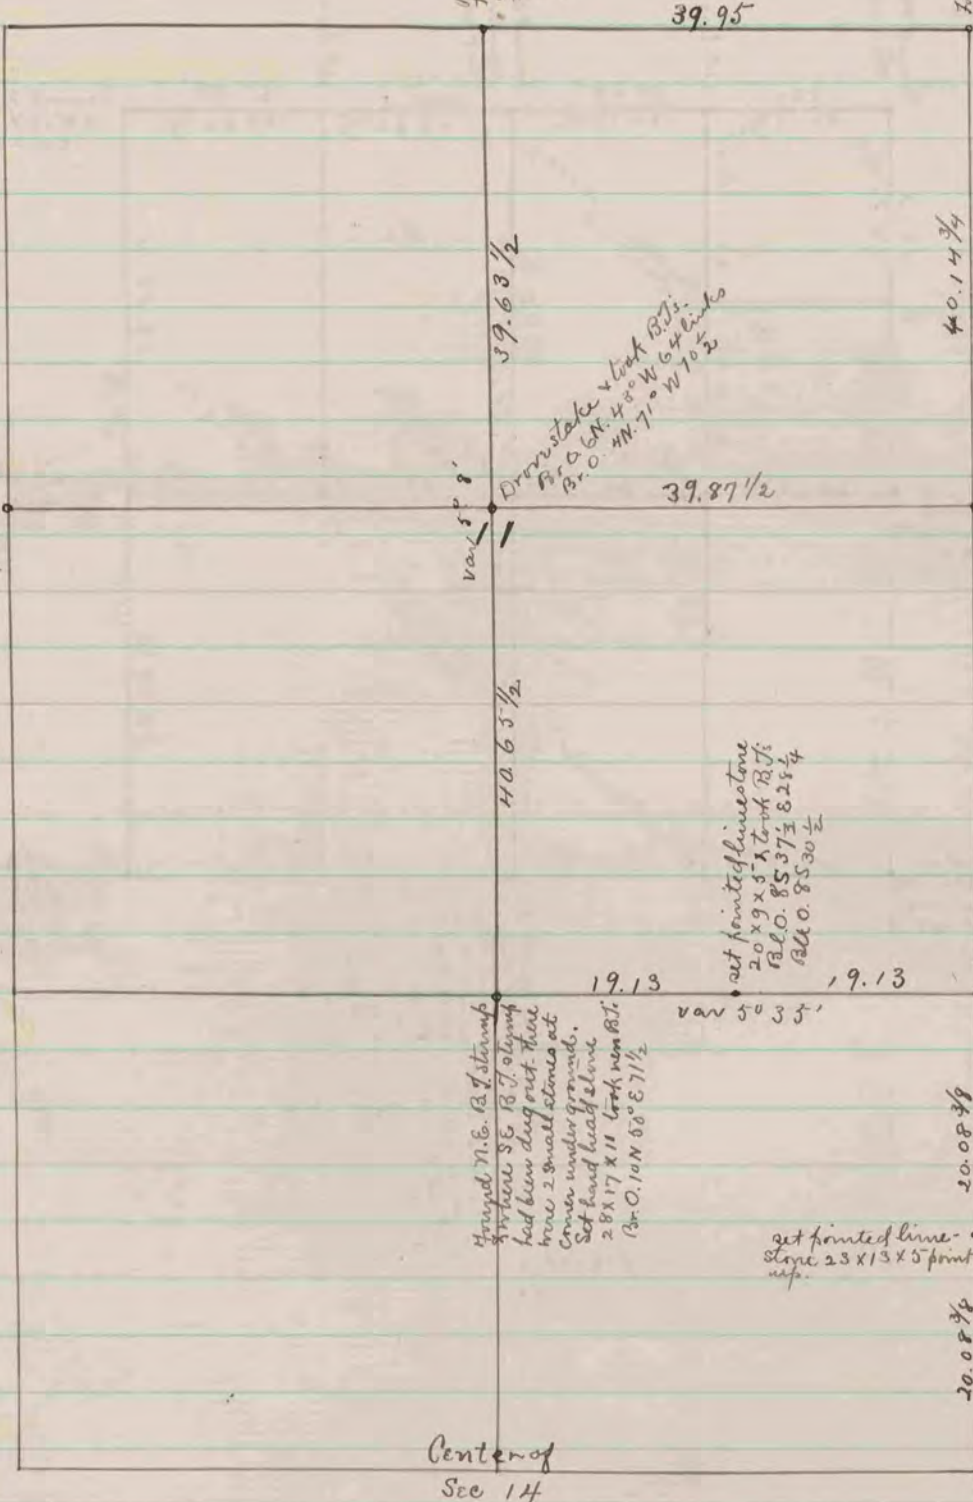 39.95
39.63 1/2
40.14 3/4
Drove stake & took B.Ts.
Br. O. 6 N. 43° W 64 links
Br. O. 4 N. 71° W 70 1/2
var 5° 8'
11
39.87 1/2
40.65 1/2
set pointed limestone
20 x 9 x 5 & took B.Ts
Bl. O. 8 S 37 1/2 E 28 1/4
Blk O. 8 S 30 1/2
19.13
19.13
var 5° 35'
Found N.E. B.T. stump
& where SE B.T. stump
had been dug out. There
were 2 small stones at
corner under ground.
Set hard head stone
28 x 17 x 11 took new B.T.
Br. O. 10 N 50° E 71 1/2
20.08 3/8
set pointed lime-
stone 23 x 13 x 5 point
up.
20.08 3/8
Center of
Sec 14